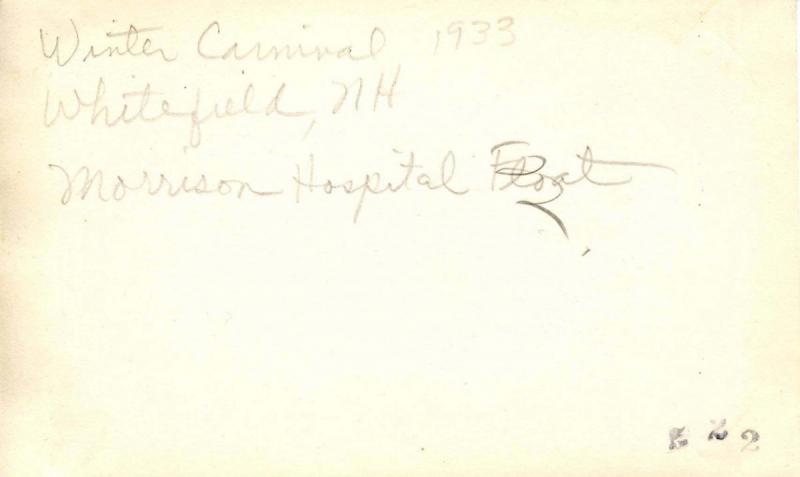 Winter Carnival 1933
Whitefield, NH
Morrison Hospital Float